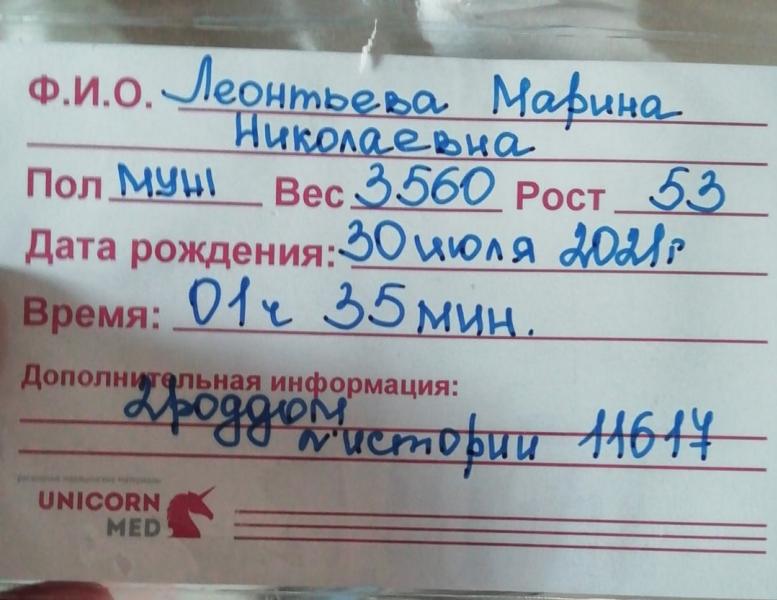 Ф.И.О. Леонтьева Марина
Николаевна
Пол муж Вес 3560 Рост 53
Дата рождения: 30 июля 2021г
Время: 01ч 35 мин.
Дополнительная информация:
2роддом
№истории 11617
UNICORN
MED